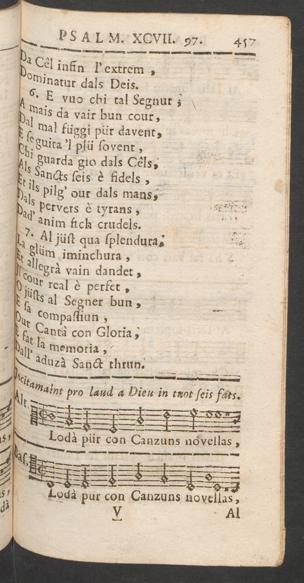 PSALM. XCVII. 97. 457
Da Cêl insin l'extrem,
Dominatur dals Deis.
6. E vuo chi tal Segnur;
A mais da vair bun cour,
Dal mal függi pür davent,
E seguita'l plü sovent,
Chi guarda gio dals Cêls,
Als Sancts seis è fidels,
Et ils pilg' our dals mans,
Dals pervers è tyrans,
Dad' anim fich crudels.
7. Al jüst qua splendura,
La glüm iminchura,
Et allegrà vain dandet,
cour real è perfet,
O jüsts al Segner bun,
E sa compastiun,
Our Cantà con Gloria,
E fat la memoria,
Dall' aduzà Sanct thrun.
Incitamaint pro laud a Dieu in tuot seis fats.
Alt.
Lodà pür con Canzuns novellas,
Bas.
Lodà pur con Canzuns novellas,
V Al